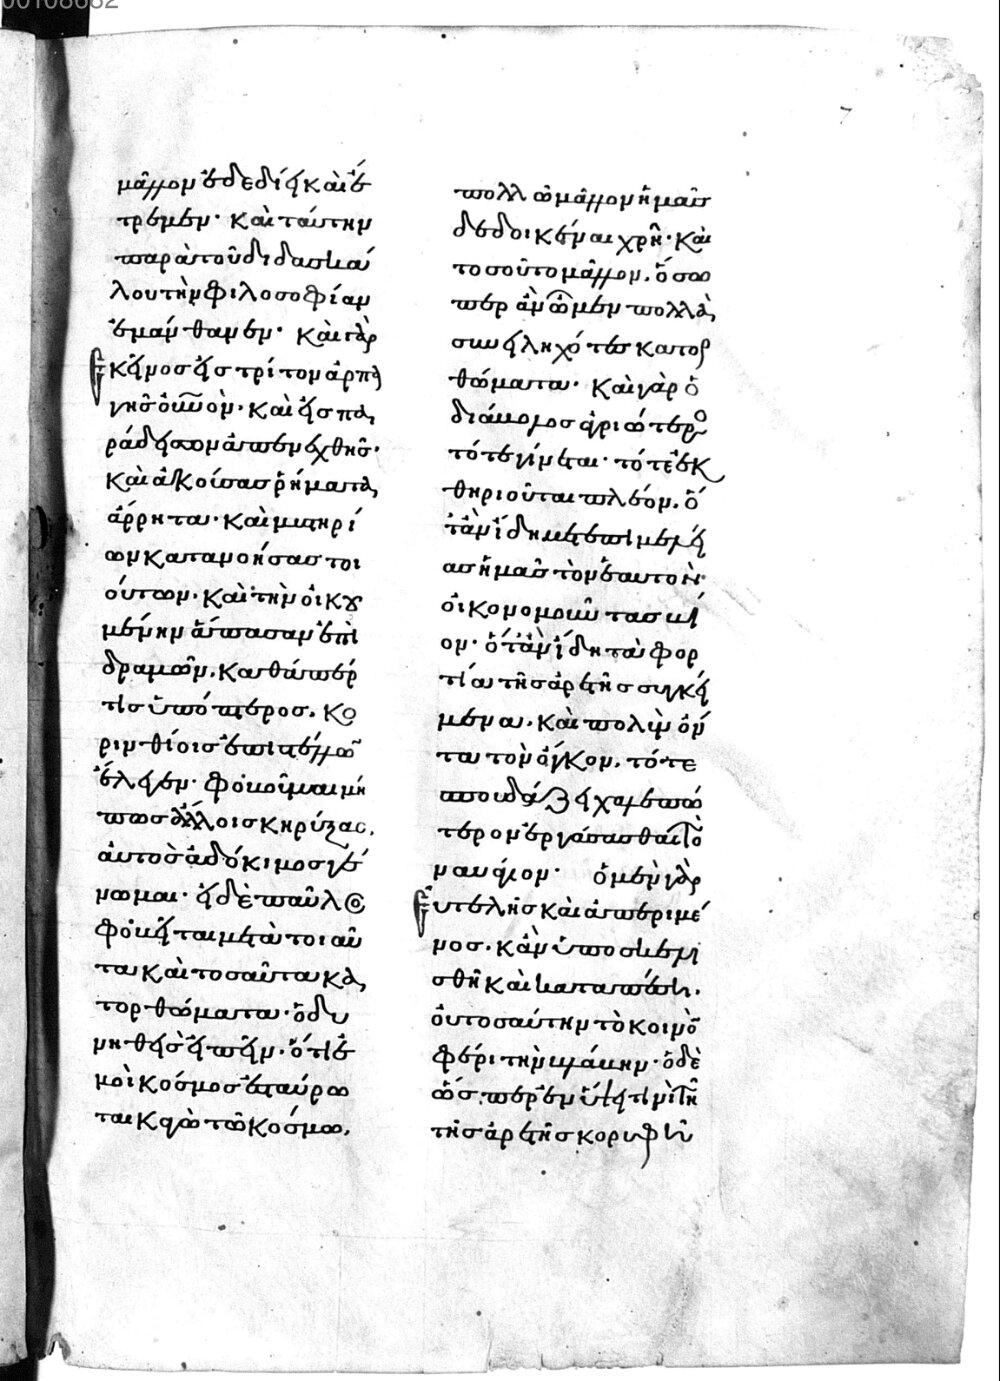 00108682
7
μᾶλλον ἐδεδίει καὶ ἔ
τρεμεν· καὶ ταύτην
παρὰ τοῦ διδασκά
λου τὴν φιλοσοφίαν
ἐμάνθανεν· καὶ γὰρ
ἐκεῖνος εἰς τρίτον ἁρπα
γεὶς οὐνὸν· καὶ εἰς πα
ράδεισον ἀπενεχθεὶς·
καὶ ἀκούσας ῥήματα
ἄρρητα· καὶ μυστηρί
ων κατανοήσας τοι
ούτων· καὶ τὴν οἰκου
μένην ἅπασαν ἐπι
δραμὼν, καθάπερ
τίς ὑπόπτερος, κο
ρινθίοις ἐπιστέλλων
ἔλεγεν· φοβοῦμαι μή
πως ἄλλοις κηρύξας,
αὐτὸς ἀδόκιμος γέ
νωμαι· εἰ δὲ παῦλος
φοβεῖται μετὰ τοιαῦ
τα καὶ τοσαῦτα κα
τορθώματα· ὁ δυ
νηθεὶς εἰπεῖν· ὅτι ἐ
μοὶ κόσμος ἐσταύρω
ται κἀγὼ τῶ κόσμω,
πολλῶ μᾶλλον ἡμᾶς
δεδοικέναι χρὴ· καὶ
τοσοῦτο μᾶλλον, ὅσω
περ ἂν ὦμεν πολλὰ
συνειληχότες κατορ
θώματα· καὶ γὰρ ὁ
διάβολος ἀγριώτερος
τότε γίνεται· τότε ἐκ
θηριοῦται πλέον, ὅ
τὰν ἴδη μετ' ἐπιμελεί
ας ἡμᾶς τὸν ἑαυτῶν
οἰκονομοῦντας βί
ον· ὅτὰν ἴδη τὰ φορ
τία τῆς ἀρετῆς συγκεί
μενα, καὶ πολὺν ὄν
τα τὸν ὄγκον, τότε
σπουδάζει χαλεπώ
τερον ἐργάσασθαι τὸ
ναυάγιον· ὁ μὲν γὰρ
εὐτελὴς καὶ ἀπεριμέ
νος, κἂν ὑποσκελι
σθῆ καὶ καταπέση,
οὐ τοσαύτην τὸ κοινὸν
φέρει τὴν βλάβην· ὁ δὲ
ὥσπερ ἐν ὑψει τινὶ τῆ
τῆς ἀρετῆς κορυφῆ